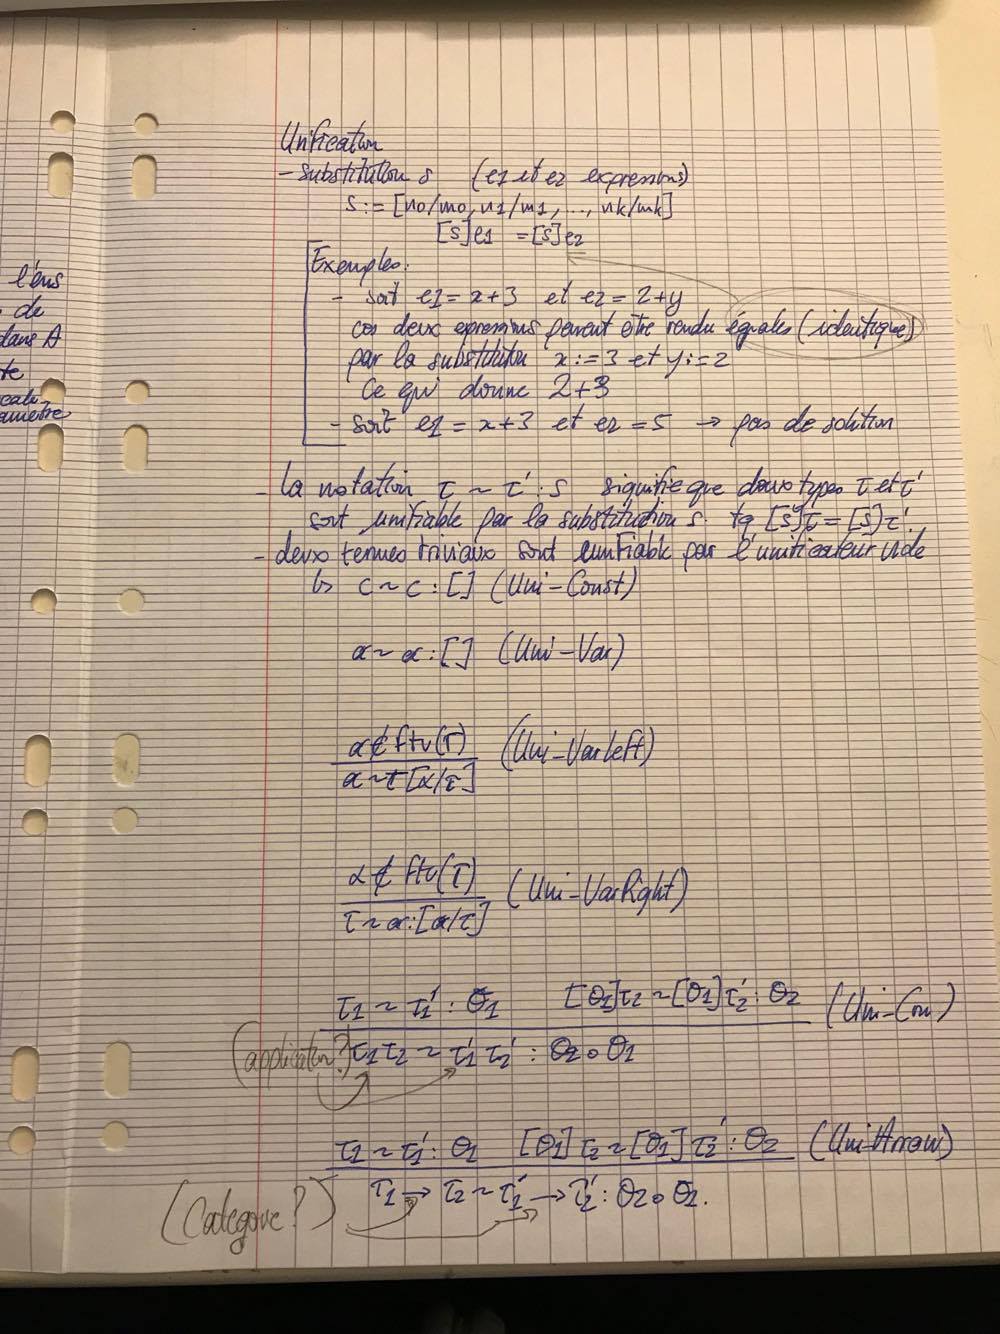 l'ens
de
dans A
te
cale
amètre
Unification
- substitution s (e1 et e2 expressions)
s := [n0/m0, n1/m1, ..., nk/mk]
[s]e1 = [s]e2
Exemples:
- soit e1 = x+3 et e2 = 2+y
ces deux expressions peuvent être rendu égales (identique)
par la substitution x:=3 et y:=2
Ce qui donne 2+3
- soit e1 = x+3 et e2 = 5 → pas de solution
- la notation τ ~ τ' : s signifie que deux types τ et τ'
sont unifiable par la substitution s. tq [s]τ = [s]τ'.
- deux termes triviaux sont unifiable par l'unificateur vide
↳ c ~ c : [] (Uni-Const)
α ~ α : [] (Uni-Var)
α ∉ ftv(τ) (Uni-VarLeft)
α ~ τ [α/τ]
α ∉ ftv(τ) (Uni-VarRight)
τ ~ α : [α/τ]
τ1 ~ τ1' : θ1 [θ1]τ2 ~ [θ1]τ2' : θ2 (Uni-Con)
(application?) τ1 τ2 ~ τ1' τ2' : θ2 ∘ θ1
τ1 ~ τ1' : θ1 [θ1] τ2 ~ [θ1] τ2' : θ2 (Uni-Arrow)
(Catégorie?) τ1 → τ2 ~ τ1' → τ2' : θ2 ∘ θ1.